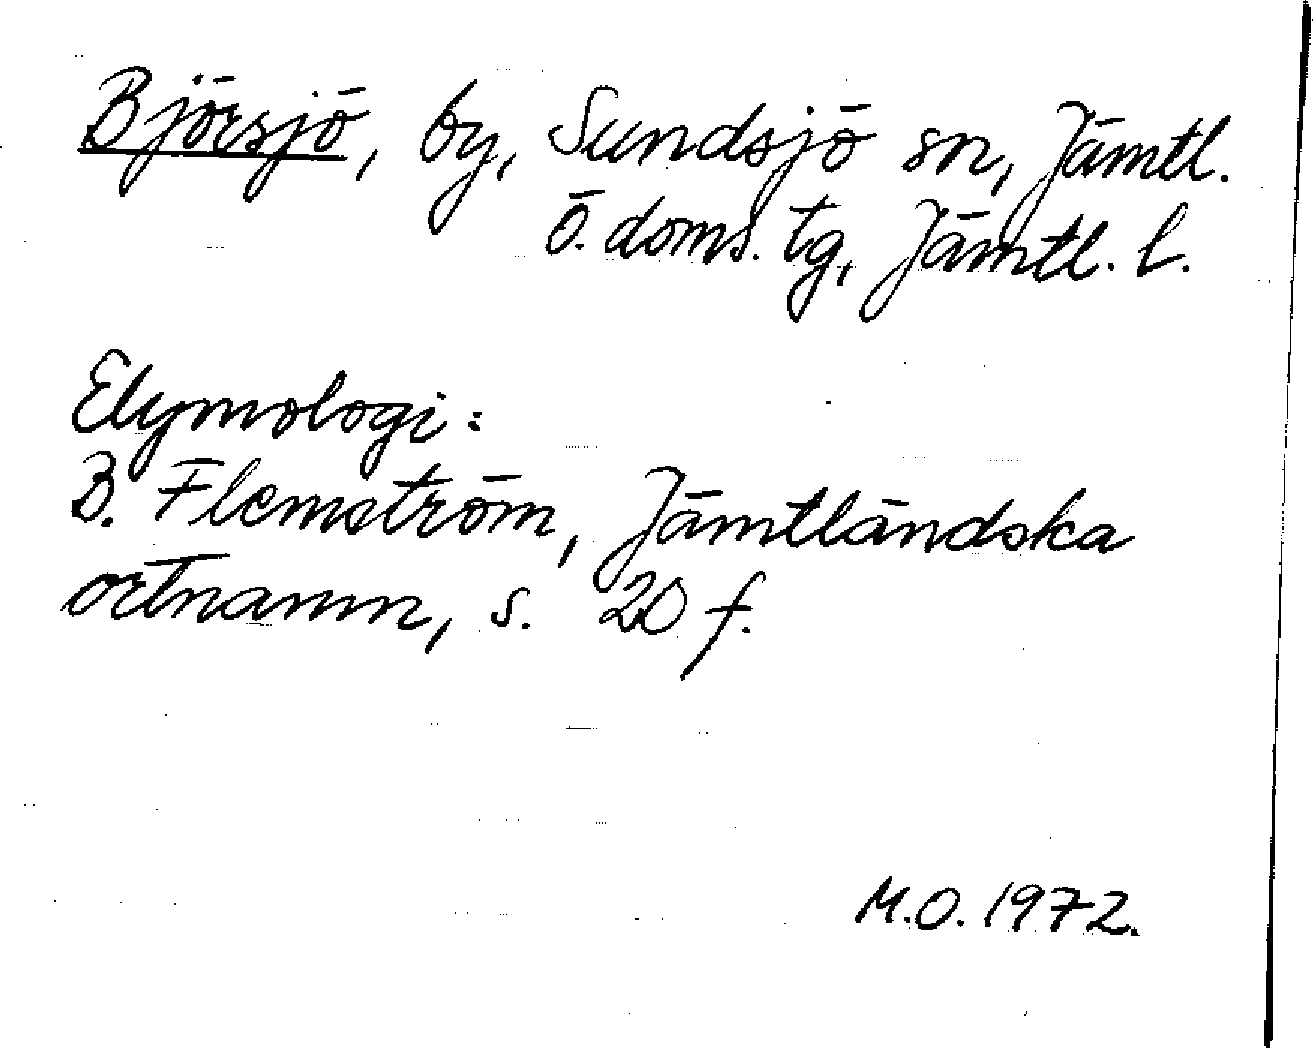 Björsjö, by, Sundsjö sn, Jämtl.
ö. doms. tg, Jämtl. l.
Etymologi:
B. Flemström, Jämtländska
ortnamn, s. 20 f.
M.O. 1972.